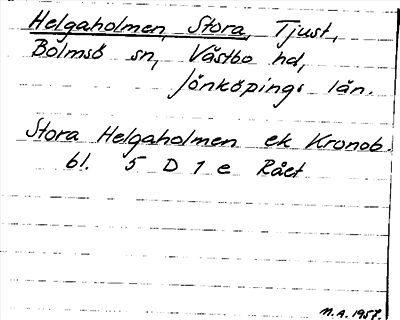 Helgaholmen, Stora, Tjust,
Bolmsö sn, Västbo hd,
Jönköpings län.
Stora Helgaholmen ek Kronob.
bl. 5 D 1 e Rået
N.A. 1957.